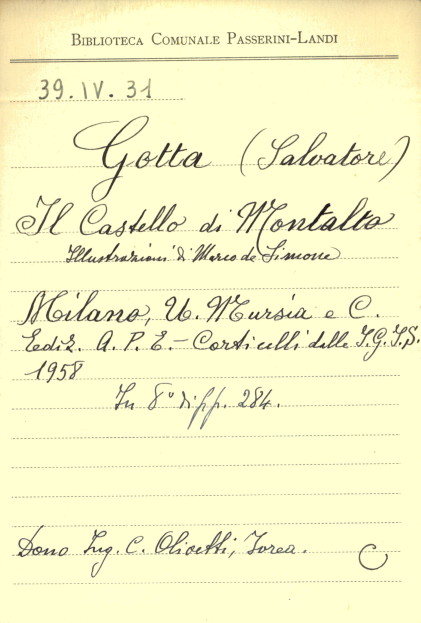 BIBLIOTECA COMUNALE PASSERINI-LANDI
39.IV.31
Gotta (Salvatore)
Il Castello di Montalto
Illustrazioni di Marco de Simone
Milano, U. Mursia e C.
Eediz. A. P. E. - Corticelli delle I.G.I.S.
1958
In 8° di pp. 284.
Dono Ing. C. Olivetti, Ivrea.
C